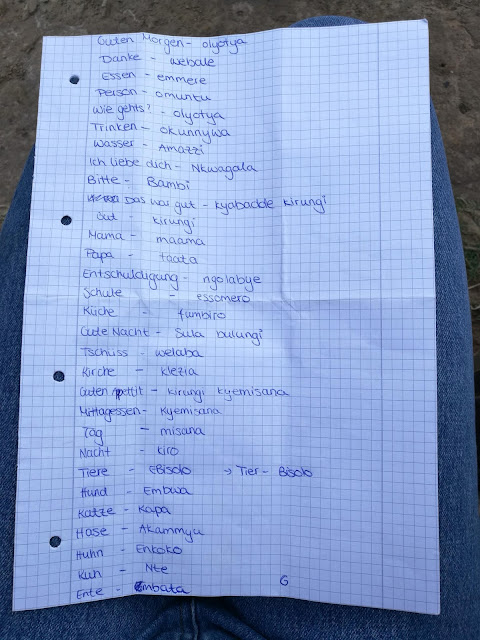 Guten Morgen - olyotya
Danke - webale
Essen - emmere
Person - omuntu
Wie gehts? - olyotya
Trinken - okunnywa
Wasser - Amazzi
Ich liebe dich - Nkwagala
Bitte - Bambi
Das war gut - kyabadde kirungi
Gut - kirungi
Mama - maama
Papa - taata
Entschuldigung - ngolabye
Schule - essomero
Küche - fumbiro
Gute Nacht - Sula bulungi
Tschüss - welaba
Kirche - klezia
Guten Appetit - kirungi kyemisana
Mittagessen - Kyemisana
Tag - misana
Nacht - kiro
Tiere - eBisolo → Tier - Bisolo
Hund - Embwa
Katze - Kapa
Hase - Akammyu
Huhn - Enkoko
Kuh - Nte
Ente - Embata
6